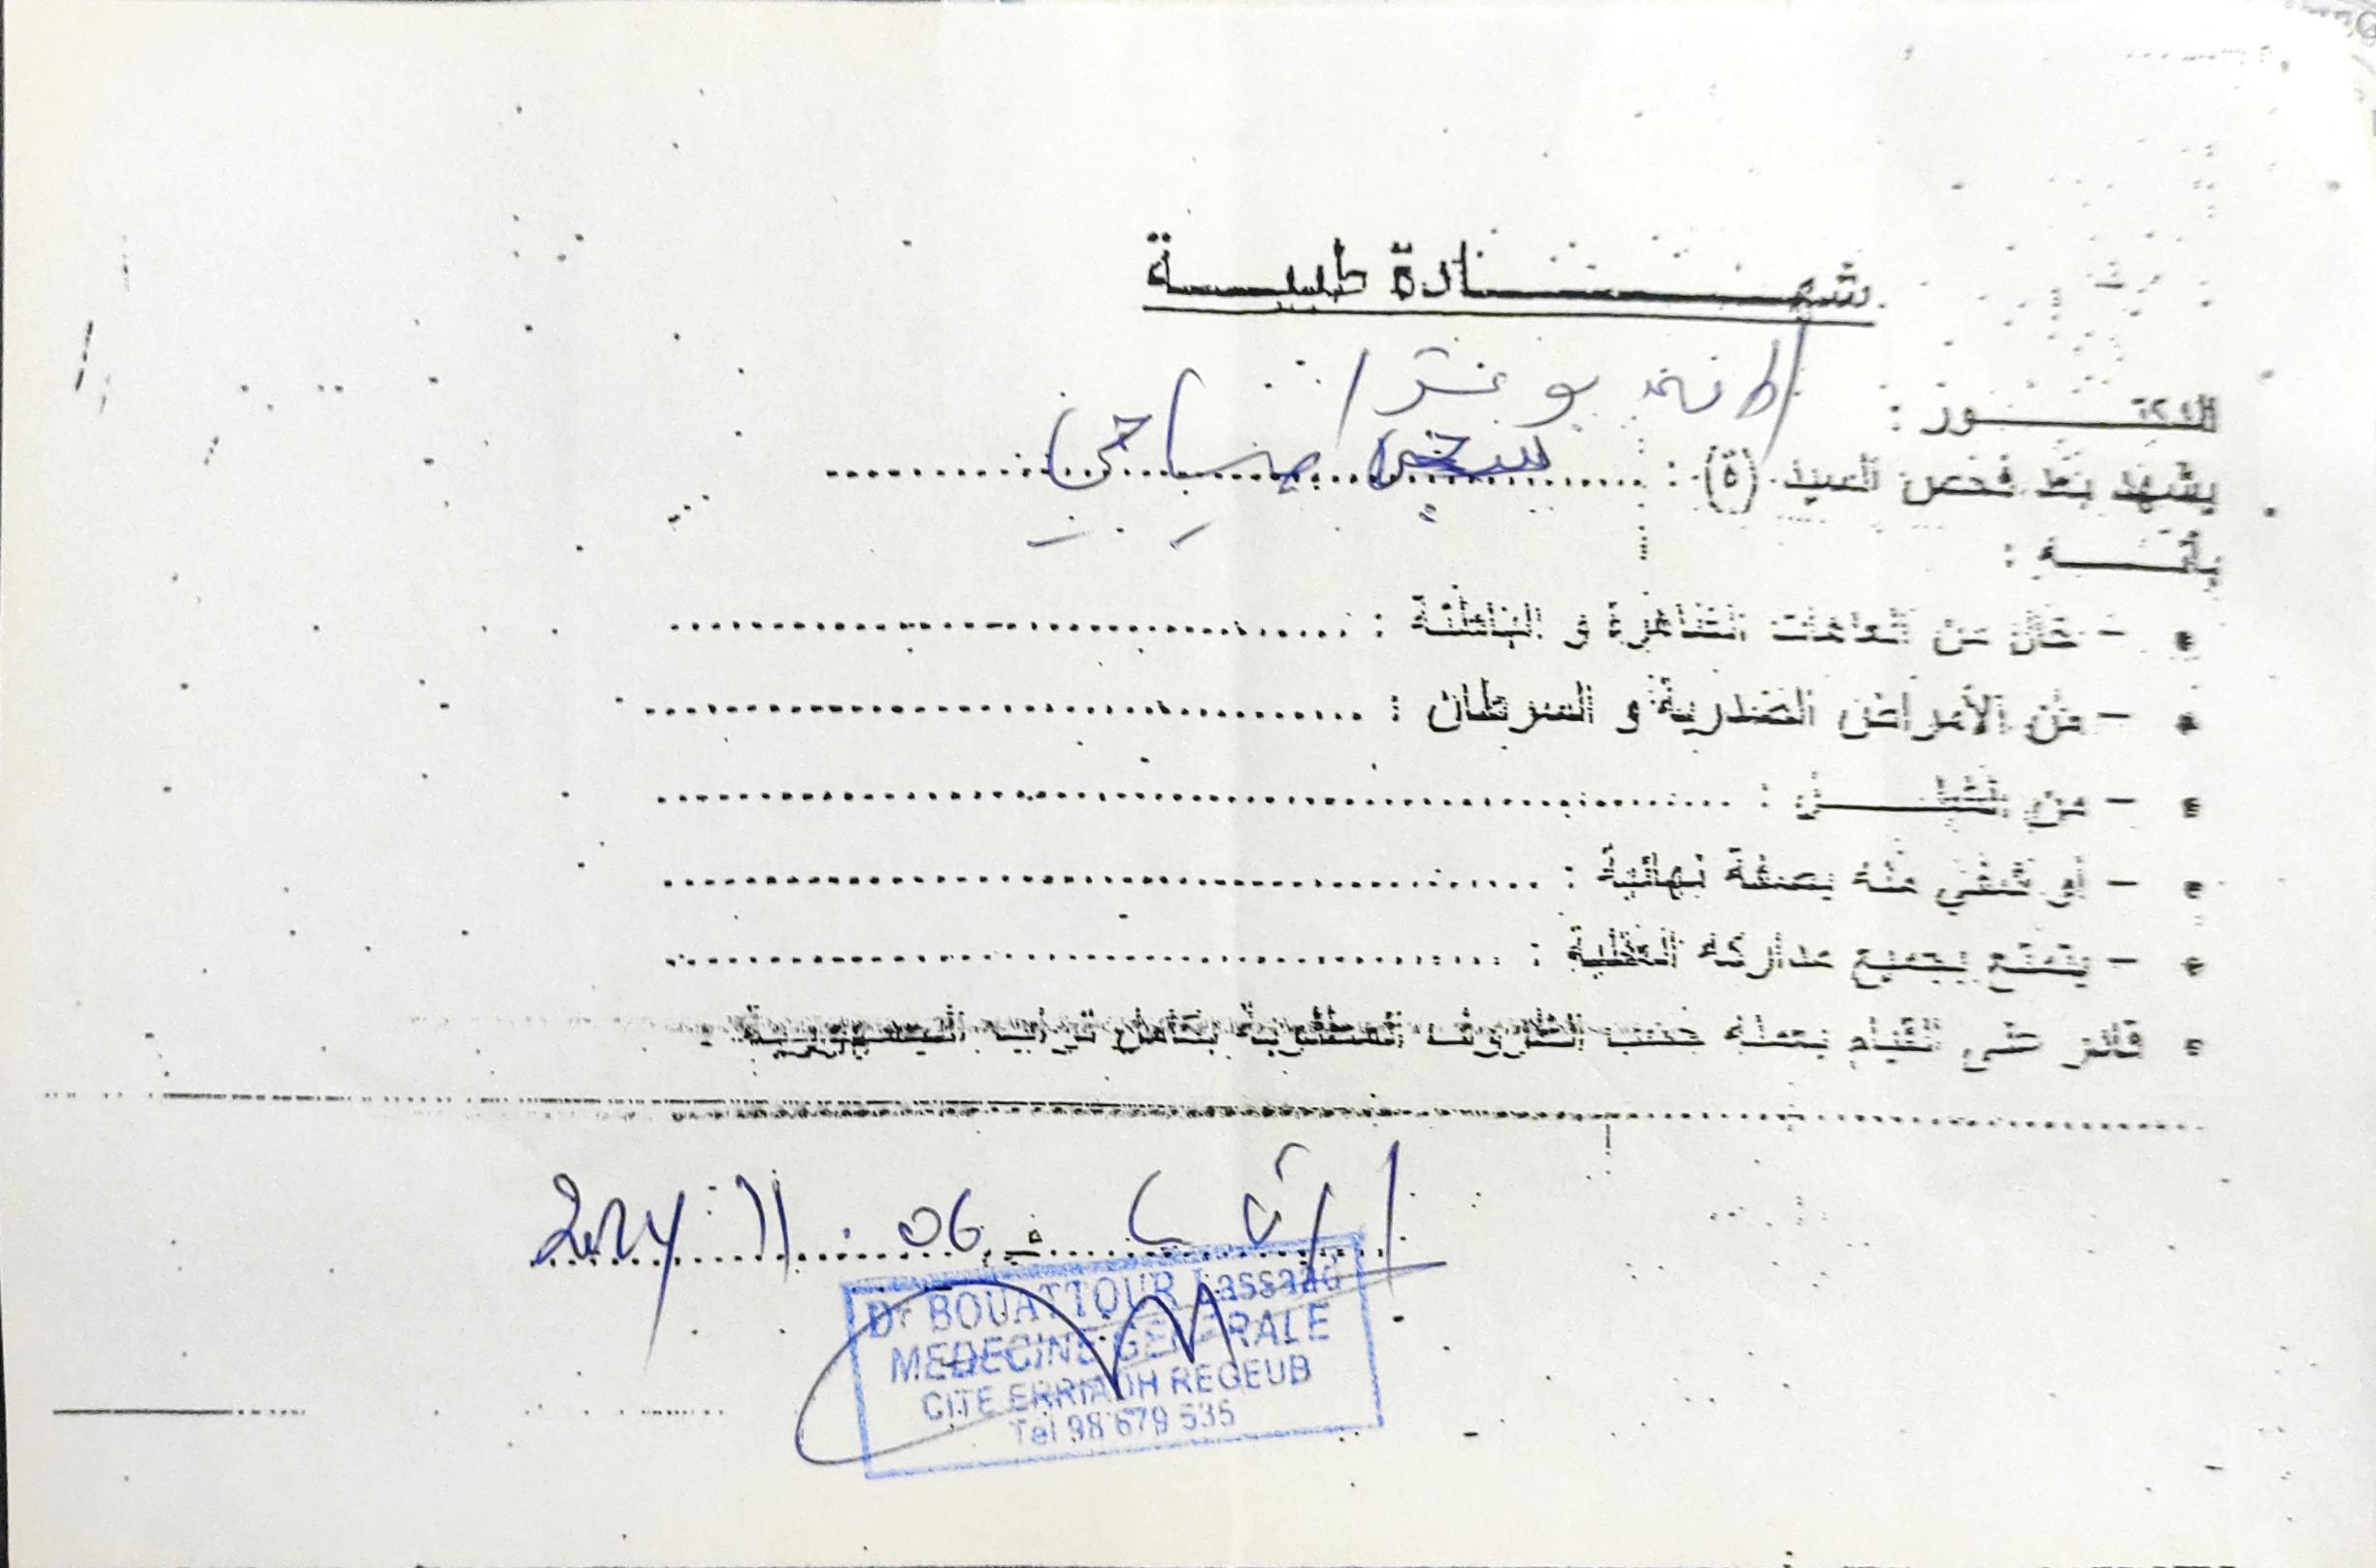 شهادة طبية
الدكتور :
يشهد بعد فحص السيد (ة) :
بأنه :
- خال من العاهات الظاهرة و الباطنة :
- من الأمراض الصدرية و السرطان :
- من الشلل :
- أو شفي منه بصفة نهائية :
- يتمتع بجميع مداركه العقلية :
قادر على القيام بعمله حسب الظروف المطلوبة بكامل تراب الجمهورية .
في 06 . 11 2024
Dr BOUATTOUR Lassaad
MEDECINE GENERALE
CITE ERRIADH REGEUB
Tel 98 679 535